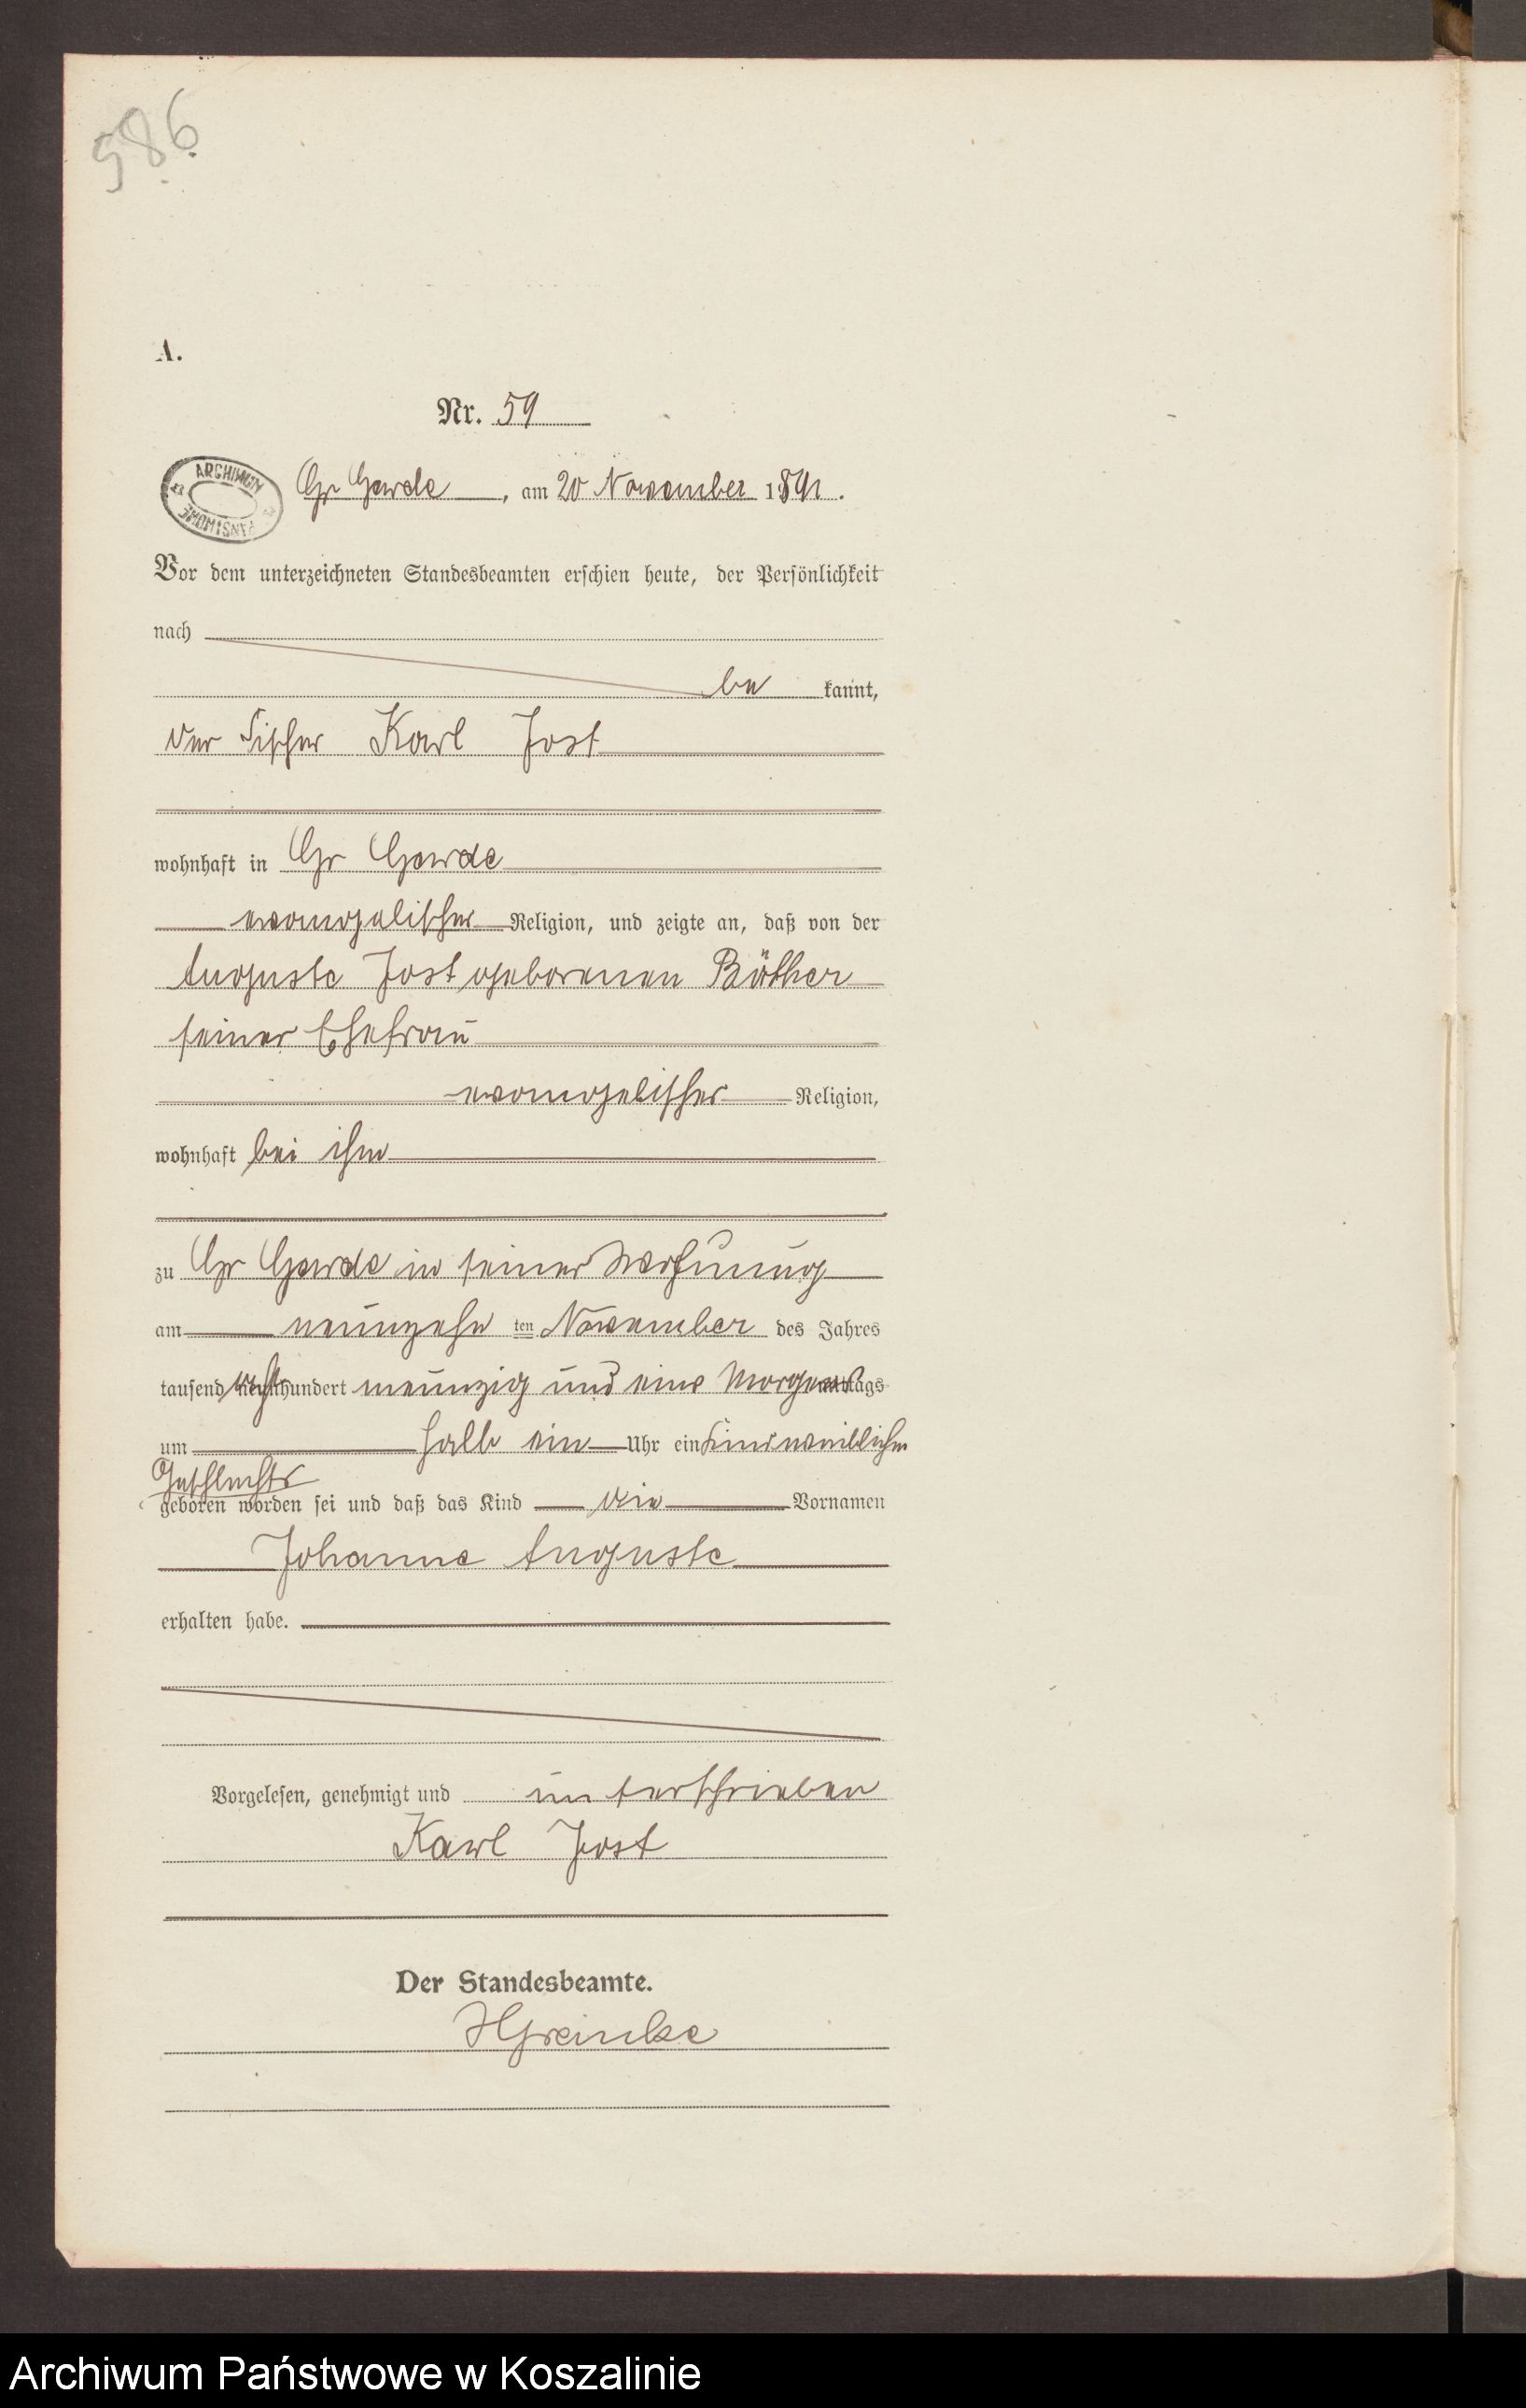 986
A.
Nr. 59
ARCHIWUM PAŃSTWOWE
Gr Garde, am 20 November 1891.
Vor dem unterzeichneten Standesbeamten erschien heute, der Persönlichkeit
nach
be kannt,
der Fischer Karl Jost
wohnhaft in Gr Garde
evangelischer Religion, und zeigte an, daß von der
Auguste Jost geborenen Böther
seiner Ehefrau
evangelischer Religion,
wohnhaft bei ihm
zu Gr Garde in seiner Wohnung
am neunzehn ten November des Jahres
tausend acht hundert neunzig und eins Morgens
um halb ein Uhr ein Kind weiblichen
Geschlechts
geboren worden sei und daß das Kind die Vornamen
Johanne Auguste
erhalten habe.
Vorgelesen, genehmigt und unterschrieben
Karl Jost
Der Standesbeamte.
Archiwum Państwowe w Koszalinie